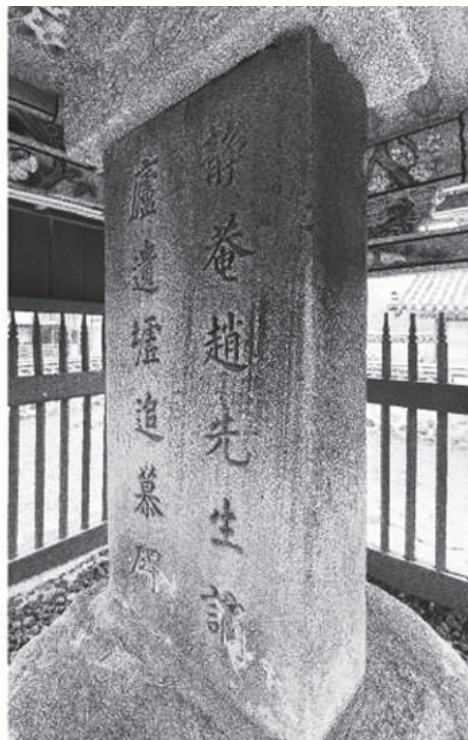 靜菴趙先生謫
廬遺墟追慕碑